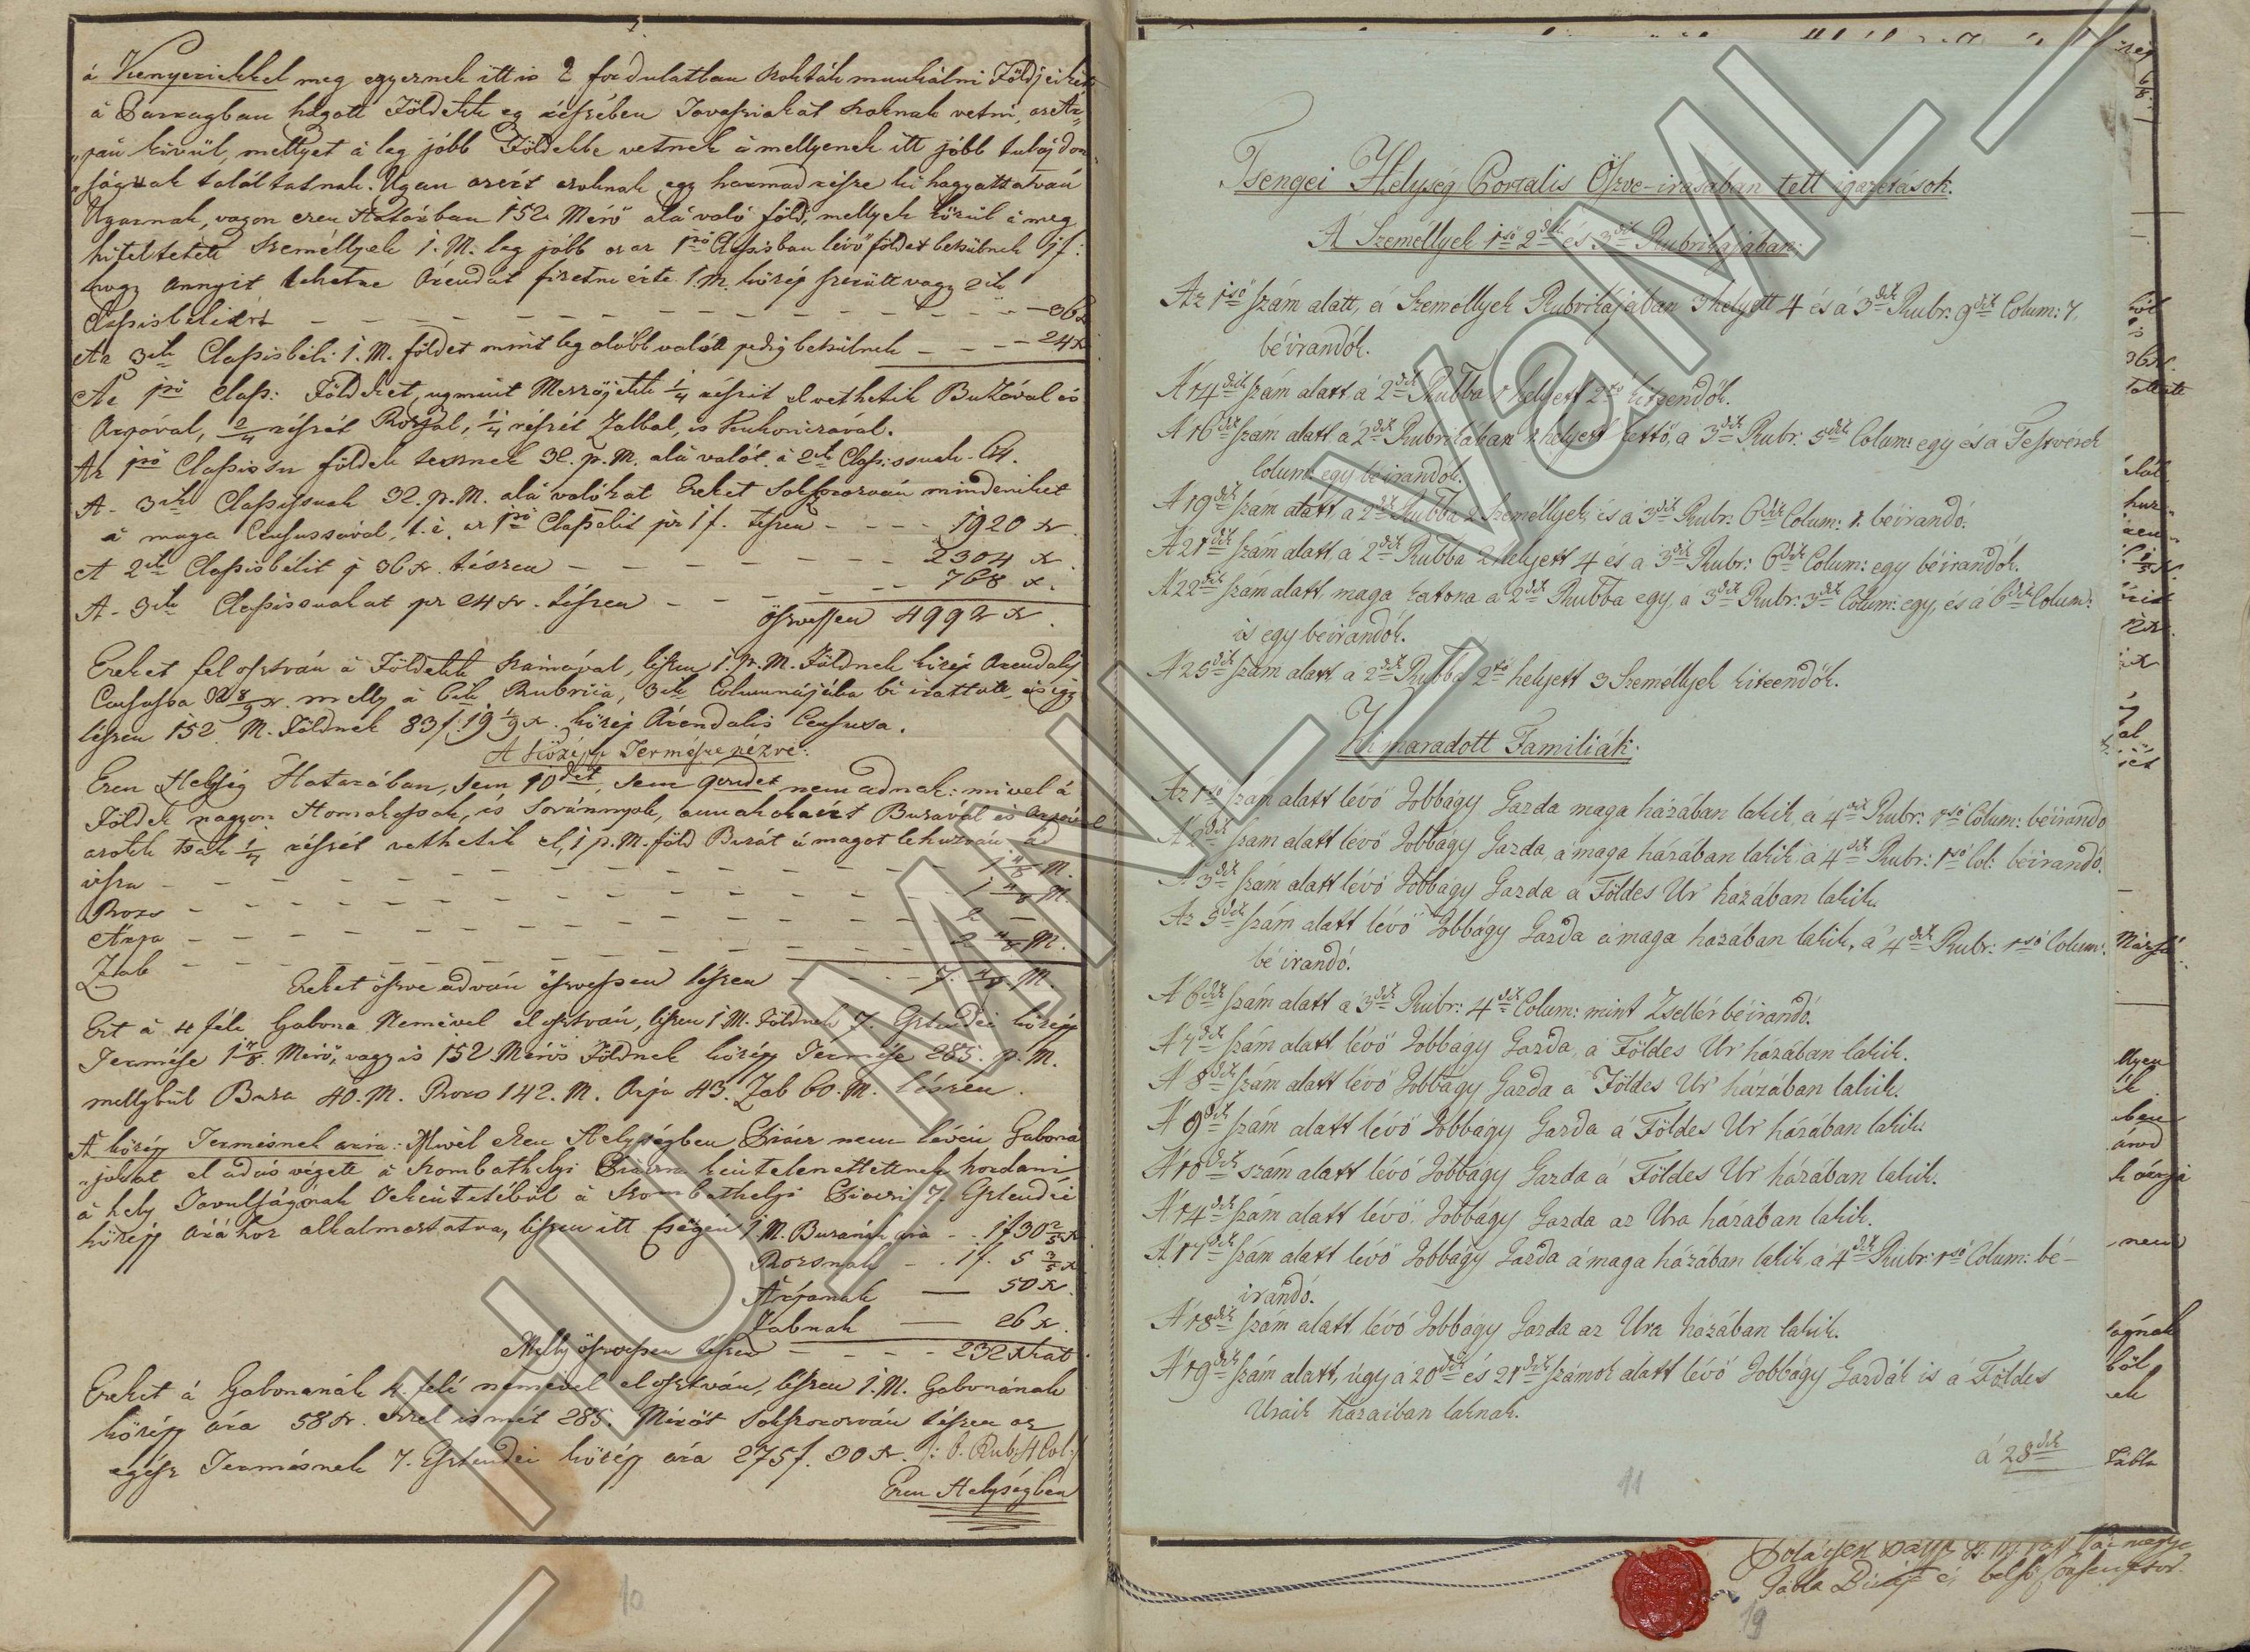 á Kenyeriekkel meg egyeznek itt is 2 fordulatban szokták munkálni Földjeiket
á Parragban hagott Földekk eg részében Tavasziakat szoknak vetni, az Ár-
„pán kivül, mellyet á leg jóbb Földekbe vetnek á mellyenek itt jóbb tulajdon
„ságuak találtatnak. Ugyan azért azoknak egy harmad része ki hagyattatván
Ugarnak, vagon ezen Határban 152 Mérő alá való föld, mellyek közül á meg
hiteltetett személlyek 1. M. leg jóbb az az 1ső Classisban lévő földet betsülnek 1 f:
hogy annyit lehetne Árendát fizetni érte 1. M. közép szerütt vagy 2ik
Classisbéliért – – – 36 x
Az 3ik Classisbéli 1. M. földet mint leg alább valótt pedig betsülnek – – – 24 x
Az 1ső Class: Földeket, ugymint Mezzőjekk 1/4 részit el vethetik Buzával és
Árpával, 2/4 részét Rozsal, 1/4 részét Zabbal, és Kukoriczával.
Az 1ső Classissu földek tesznek 32. p. M. alá valót. á 2ik Classissuak 64.
A 3ik Classissuak 32. p. M. alá valókat Ezeket Sokszorozván mindeniket
á maga Censussával, t. i. az 1ső Classélit pr 1 f. tészen – – – 1920 x.
A 2ik Classisbélit p 36 x. tészen – – – 2304 x.
A 3ik Classissuakat pr 24 xr. tészen – – – 768 x.
Öszvessen 4992 x.
Ezeket fel osztván á Földekk számával, lészen 1. p. M. Földnek közép Arendalis
Censussa 32 8/9 x. melly á 6ik Rubrica, 3ik Columnájába bé irattatik, és igy
lészen 152 M. Földnek 83 f. 19 1/9 x. közép Árendalis Censusa.
A Közép Termésre nézve:
Ezen Helység Határában, sem 10det, sem 9cedet nem adnak: mivel á
Földek nagyon Homokossak, és Soványnyok, annakokaért Buzával és Árpával
azokk tsak 1/4 részét vethetik el, 1 p. M. föld Buzát á magot lehuzván ád
viszsza – – – 1 4/8 M.
Rozs – – – 1 4/8 M.
Árpa – – – 2 –
Zab – – – 2 4/8 M.
Ezeket öszve adván öszvessen lészen – – 7. 4/8 M.
Ezt á 4 féle Gabona Nemével el osztván, lészen 1 M. Földnek 7. Esztendei közép
Termése 1 7/8 Mérő, vagyis 152 Mérős Földnek közép Termése 285. p. M.
mellybül Buza 40. M. Rozs 142. M. Árpa 43. Zab 60. M. lészen.
A közép Termésnek ára: Mivel Ezen Helységben Piácz nem lévén Gaboná
„jokat el adás végett á Szombathelyi Piáczra kéntelenettetnek hordani
á hely Távulságának tekéntetébül á Szombathelyi Piaczi 7. Esztendei
közép árához alkalmaztatva, lészen itt Csögén 1 M. Buzának ára – 1 f 30 2/5 x
Rozsnak – 1 f. 5 3/5 x
Árpának — 50 x.
Zabnak — 26 x.
Melly öszvessen tészen – – – 232 xkat
Ezeket á Gabonának 4. féle nemével el osztván, lészen 1. M. Gabonának
közép ára 58 xr. ezzel ismét 285. Mérőt Sokszorozván tészen az
egész Termésnek 7. Esztendei közép ára 275 f. 30 xr. /: 6. Rub: 4 Col:/
Ezen Helységben
10
Tsengei Helység Portalis Öszve-irásában tett igazitások.
A' Személlyek 1ső 2dik és 3dik Rubrikájában:
Az 1ső szám alatt, á Személlyek Rubrikájában 3 helyett 4 és á 3dik Rubr: 9dik Colum: 7.
béirandók.
A' 14dik szám alatt á 2dik Rubba 1 helyett 2tő kiteendők.
A' 16dik szám alatt á 2dik Rubrikában 1 helyett kettő, a 3dik Rubr: 5dik Colum: egy és á Testverek
Colum: egy béirandók.
A' 19dik szám alatt, á 2dik Rubba 2 Személlyek és á 3dik Rubr: 6dik Colum: 1. béirandó.
A' 21dik szám alatt, á 2dik Rubba 2 helyett 4 és a 3dik Rubr: 6dik Colum: egy béirandók.
A' 22dik szám alatt, maga katona a 2dik Rubba egy, a 3dik Rubr: 3dik Colum: egy, és á 6dik Colum:
is egy béirandók.
A' 25dik szám alatt á 2dik Rubba 2tő helyett 3 Személlyek kiteendők.
Kimaradott Familiák:
Az 1ső szám alatt lévő Jobbágy Gazda maga házában lakik, á 4dik Rubr: 1ső Colum: béirandó
A' 2dik szám alatt lévő Jobbágy Gazda, á maga házában lakik, á 4dik Rubr: 1ső Col: béirandó.
A' 3dik szám alatt lévő Jobbágy Gazda á Földes Ur házában lakik.
Az 5dik szám alatt lévő Jobbágy Gazda á maga házában lakik, á 4dik Rubr: 1ső Colum:
bé irandó.
A' 6dik szám alatt a 3dik Rubr: 4dik Colum: mint Zsellér béirandó.
A' 7dik szám alatt lévő Jobbágy Gazda, á Földes Ur házában lakik.
A' 8dik szám alatt lévő Jobbágy Gazda á Földes Ur házában lakik.
A' 9dik szám alatt lévő Jobbágy Gazda á Földes Ur házában lakik.
A' 10dik szám alatt lévő Jobbágy Gazda á Földes Ur házában lakik.
A' 14dik szám alatt lévő Jobbágy Gazda az Ura házában lakik.
A' 17dik szám alatt lévő Jobbágy Gazda á maga házában lakik, á 4dik Rubr: 1ső Colum: bé-
irandó.
A' 18dik szám alatt lévő Jobbágy Gazda az Ura házában lakik.
A' 19dik szám alatt, úgy á 20dik és 21dik számok alatt lévő Jobbágy Gazdák is á Földes
Uraik házaiban laknak.
á 28dik
11
Tábla Birája és belső
19
HUMNL VaML